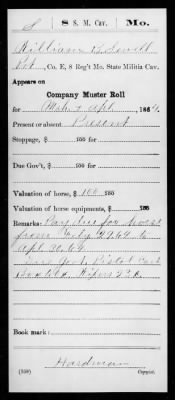 S 8 S. M. Cav. Mo.
William B. Sewell
Pvt., Co. E, 8 Reg't Mo. State Militia Cav.
Appears on
Company Muster Roll
for Mch & Apl, 1864.
Present or absent Present
Stoppage, $ 100 for
Due Gov't, $ 100 for
Valuation of horse, $ 100 100
Valuation of horse equipments, $ 100
Remarks: Pay due for horse
from Feby 29 64 to
Apl 30, 64
Due Govt. Pistol Cart
Book mark:
Hardman
(359) Copyist.